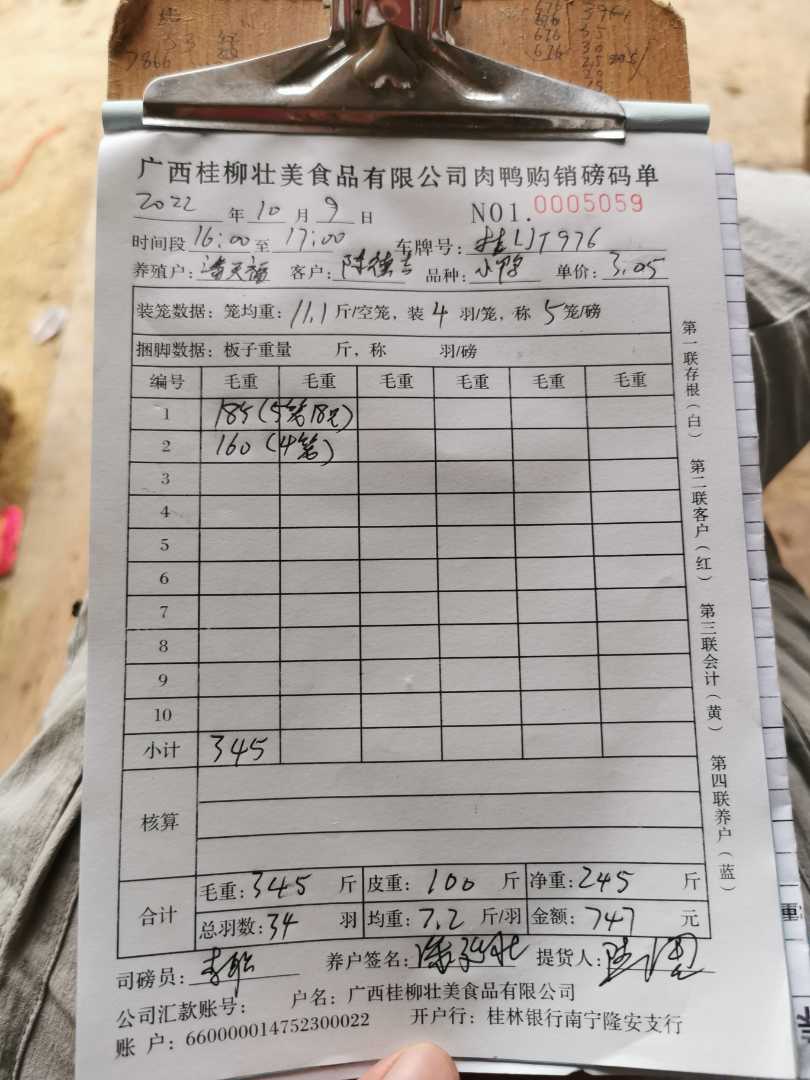 广西桂柳壮美食品有限公司肉鸭购销磅码单
2022 年 10 月 9 日 NO1. 0005059
时间段 16:00 至 17:00 车牌号: 桂LJT976
养殖户: 客户: 陈德 品种: 小鸭 单价: 3.05
装笼数据: 笼均重: 11.1 斤/空笼, 装 4 羽/笼, 称 5 笼/磅
捆脚数据: 板子重量 斤, 称 羽/磅
编号 毛重 毛重 毛重 毛重 毛重 毛重
1 185 (5笼18只)
2 160 (4笼)
3
4
5
6
7
8
9
10
小计 345
核算
合计
毛重: 345 斤 皮重: 100 斤 净重: 245 斤
总羽数: 34 羽 均重: 7.2 斤/羽 金额: 747 元
司磅员: 养户签名: 提货人:
公司汇款账号: 户名: 广西桂柳壮美食品有限公司
账 户: 660000014752300022 开户行: 桂林银行南宁隆安支行
第一联存根(白)
第二联客户(红)
第三联会计(黄)
第四联养户(蓝)